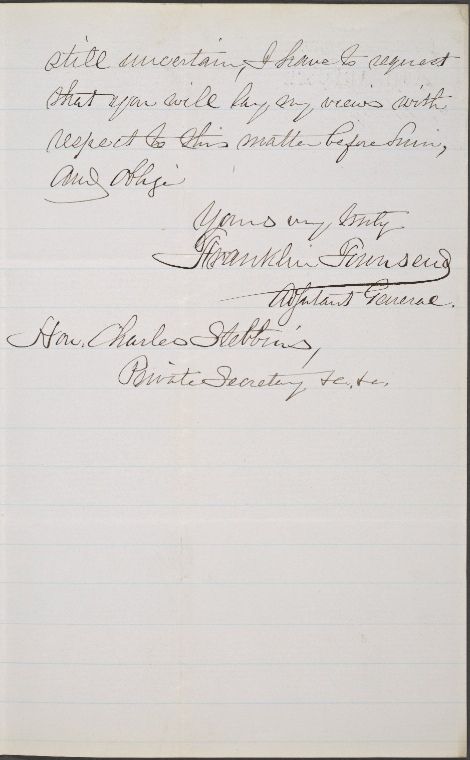 still uncertain, I have to request
that you will lay my views with
respect to this matter before him,
and oblige
Yours very truly
Franklin Townsend
Adjutant General.
Hon. Charles Stebbins,
Private Secretary &c. &c.